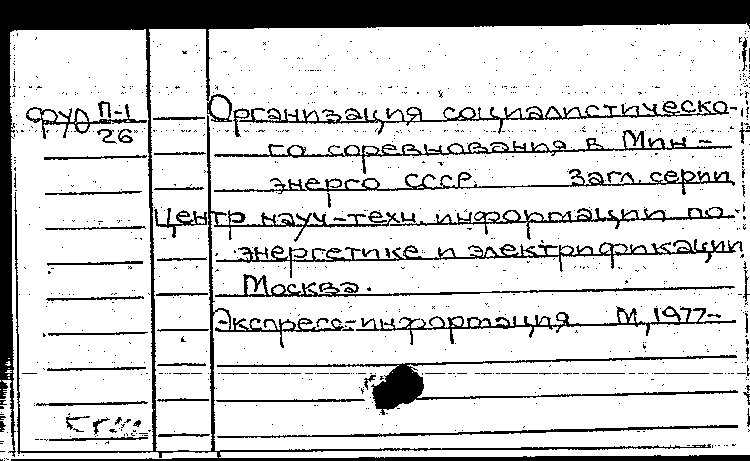 фуо П-1 Организация социалистическо-
26 го соревнования в Мин-
энерго СССР. Загл. серии
Центр науч-техн. информации по
энергетике и электрификации
Москва.
Экспресс-информация М., 1977-